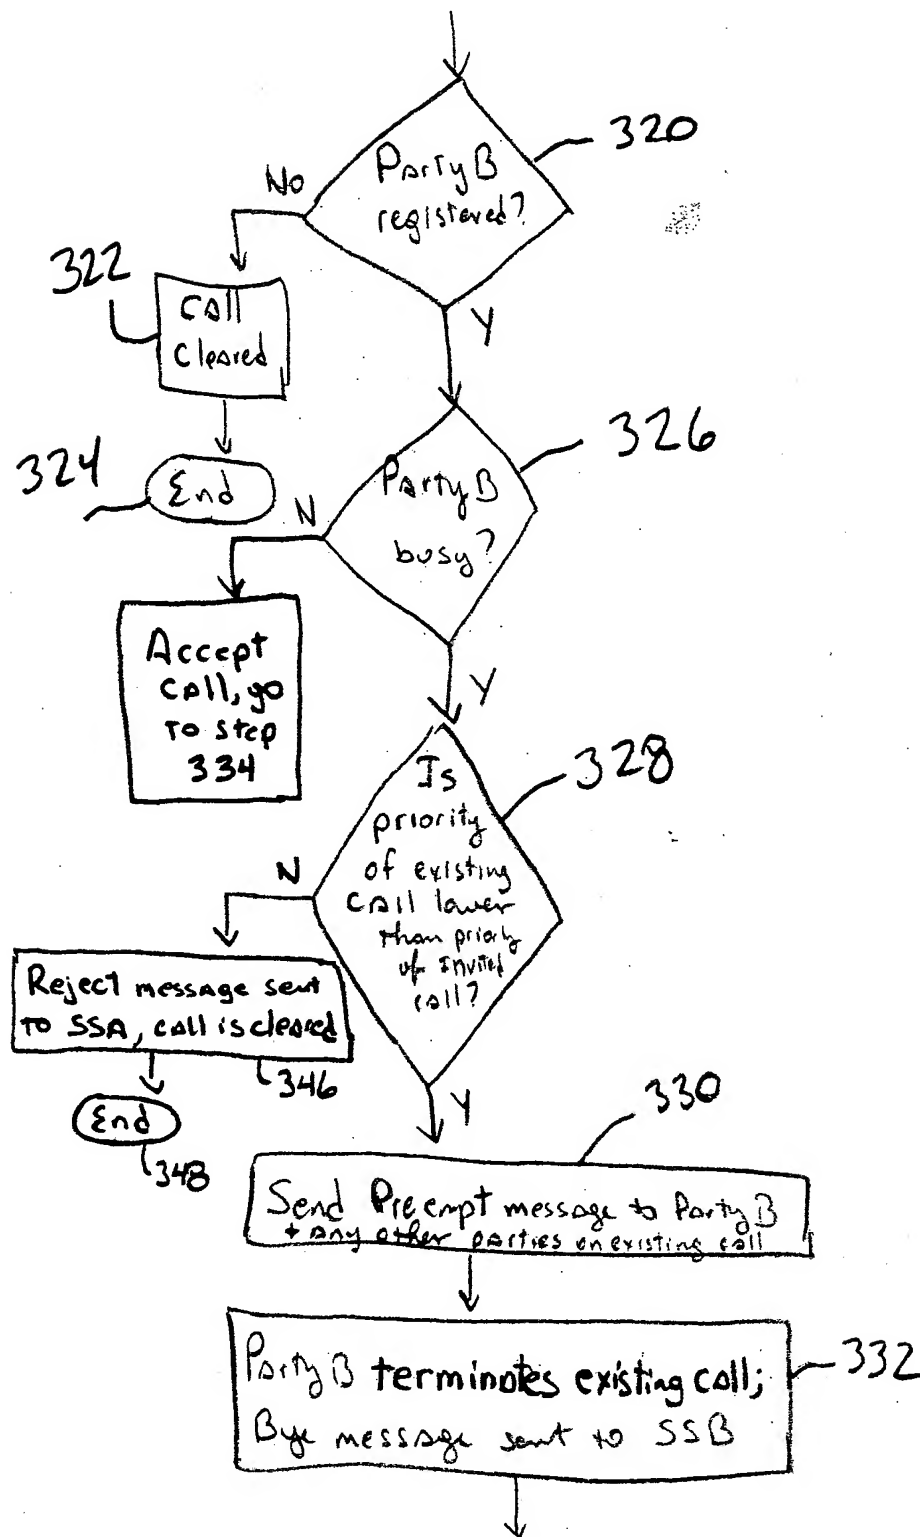 320
Party B
registered?
No
Y
322
Call
Cleared
324
End
326
Party B
busy?
N
Y
Accept
call, go
to step
334
328
Is
priority
of existing
call lower
than priority
of Invited
call?
N
Y
Reject message sent
to SSA, call is cleared
346
End
348
330
Send Preempt message to Party B
+ any other parties on existing call
332
Party B terminates existing call;
Bye message sent to SSB